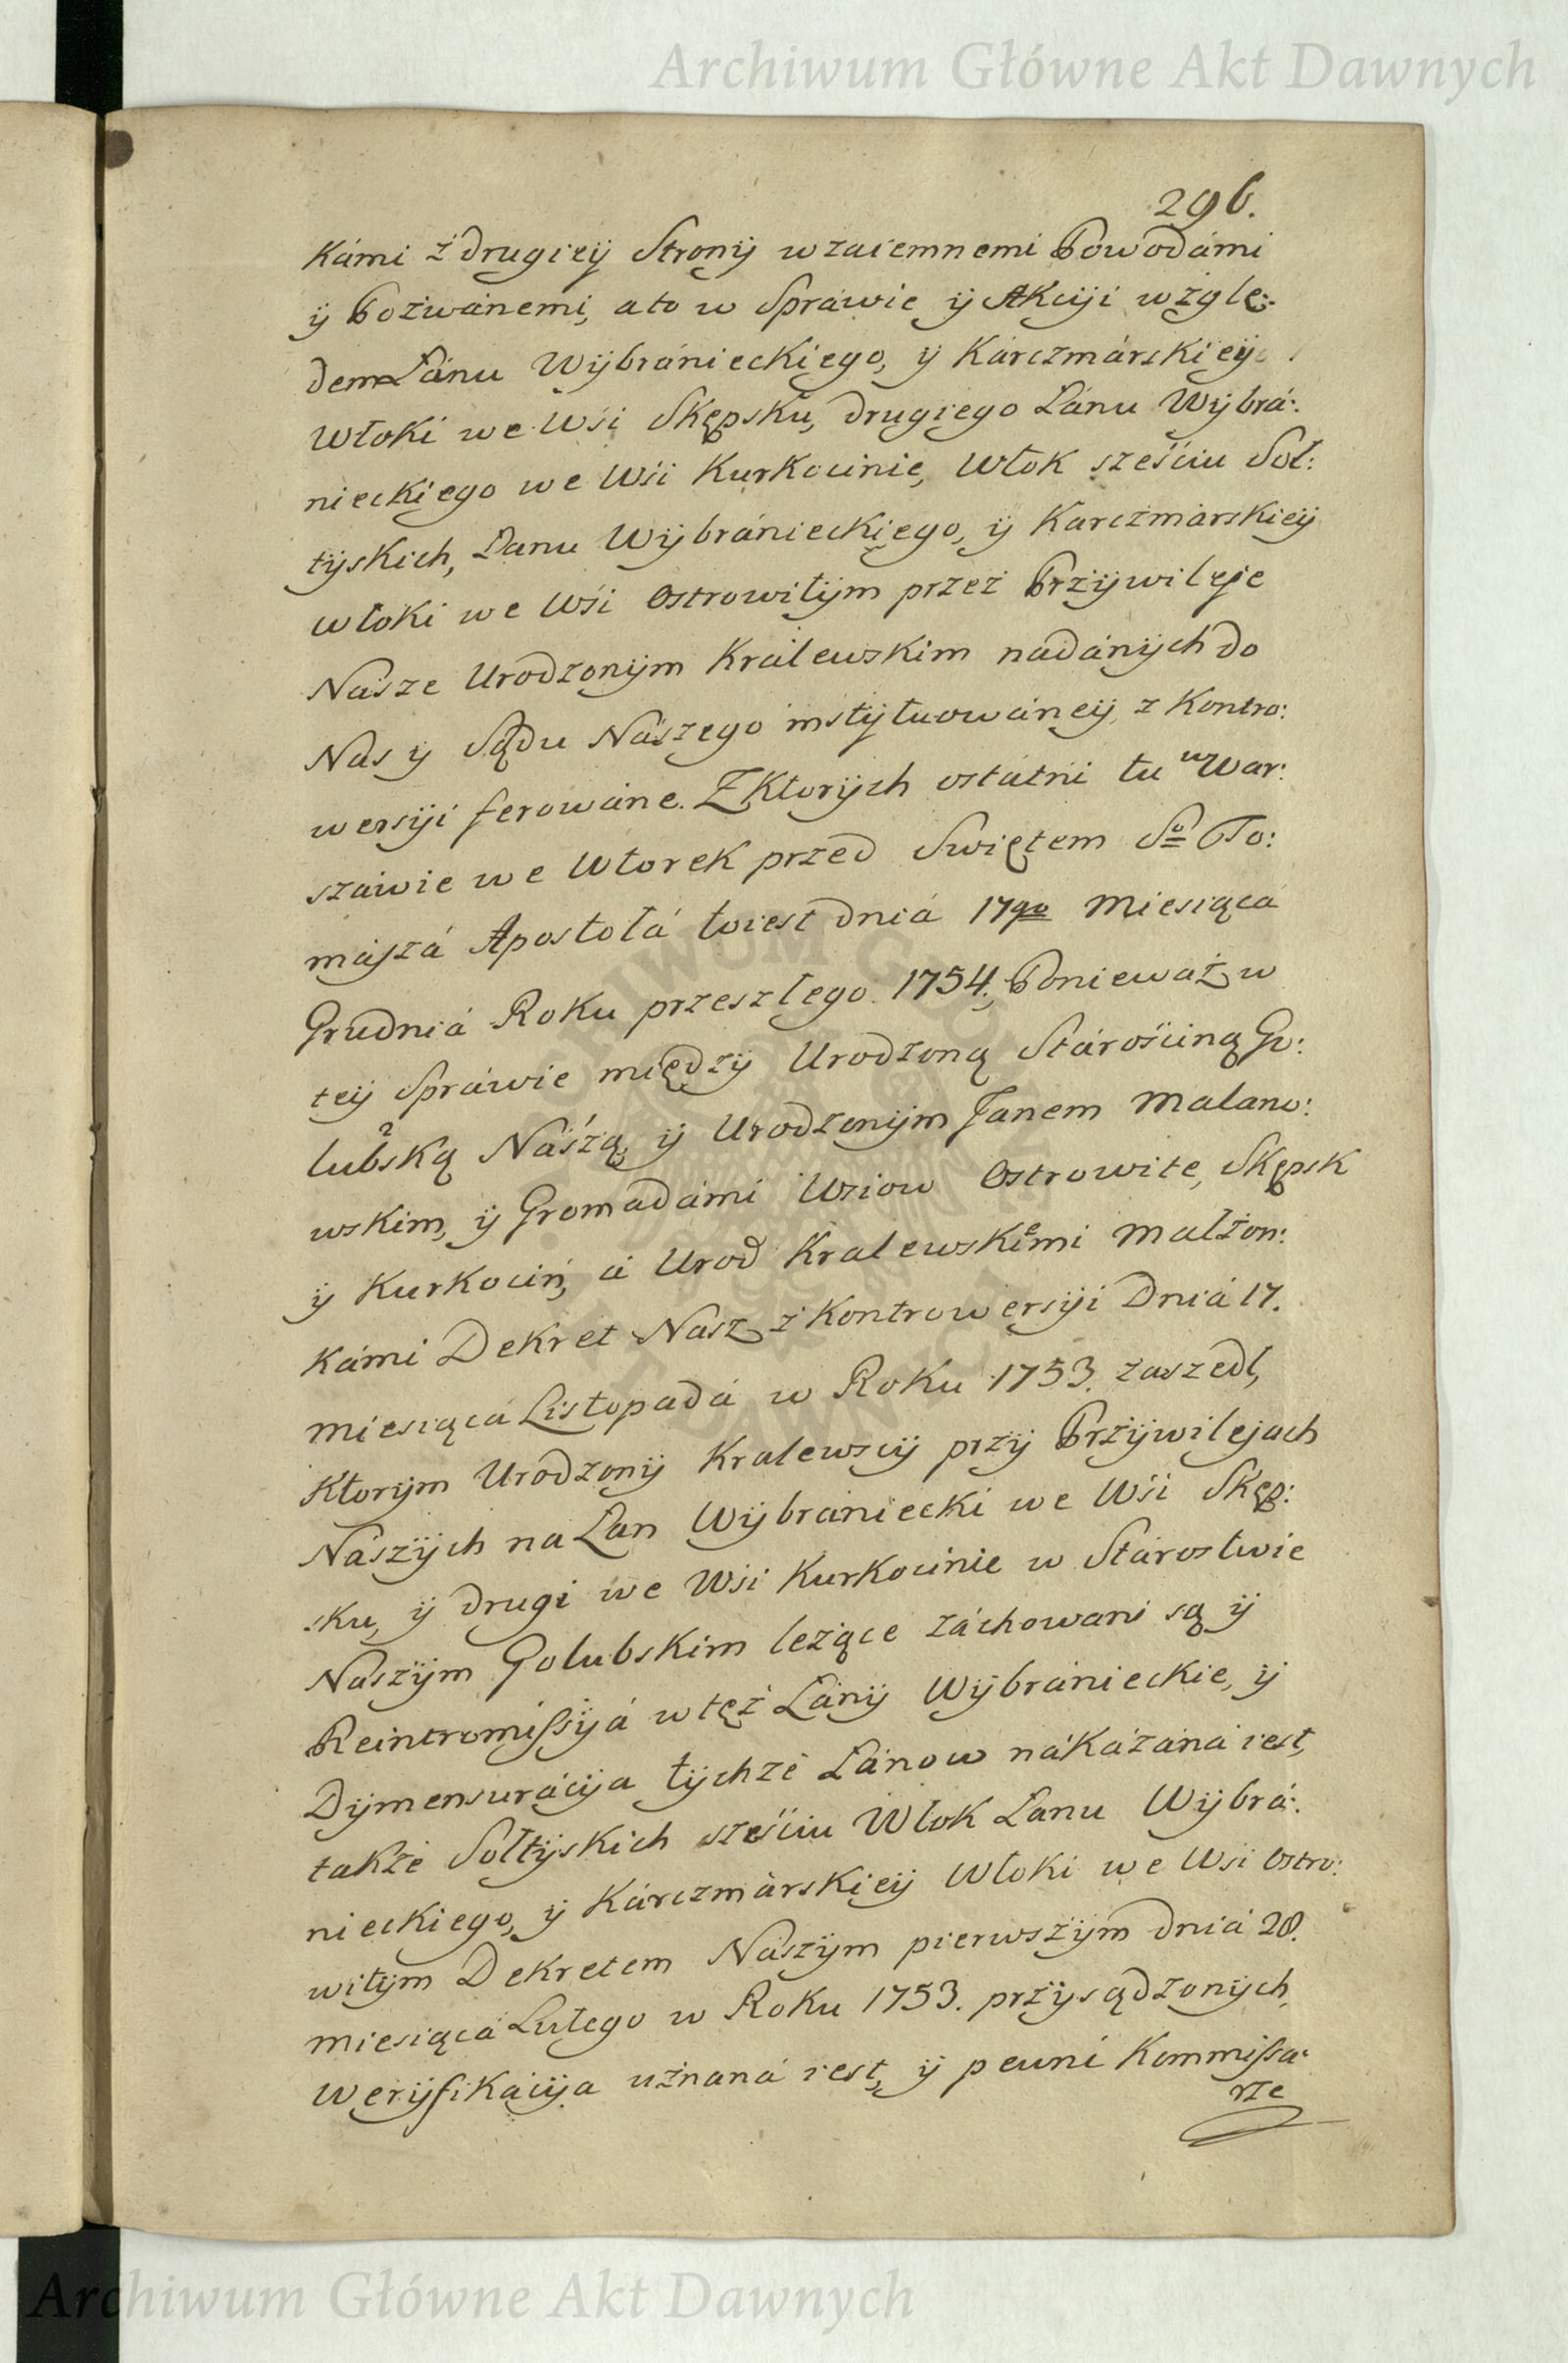 Archiwum Główne Akt Dawnych
296.
kámi z drugiey Strony wzaiemnemi Powodámi
ÿ Pozwánemi, a to w Spráwie ÿ Akcÿi wzglę:
dem Łánu Wÿbránieckiego, ÿ Kárczmárskieÿ
Włoki we Wśi Skępsku, drugiego Łánu Wÿbrá:
nieckiego we Wśi Kurkocinie, Włok sześciu Soł:
tÿskich, Łanu Wÿbránieckiego, ÿ Karczmarskieÿ
włoki we Wśi Ostrowitÿm przez Przÿwileje
Nasze Urodzonÿm Kralewskim nadánÿch do
Nas ÿ Sądu Nászego instÿtuowáneÿ, z Kontro:
wersÿi ferowáne. Z Ktorÿch ostátni tu w War:
száwie we Wtorek przed Swiętem So To:
maszá Apostołá toiest dniá 17go Miesiąca
Grudniá Roku przeszłego 1754. Ponieważ w
teÿ Spráwie międzÿ Urodzoną Stárościną Go:
lubską Naszą, ÿ Urodzonÿm Janem Malano:
wskim, ÿ Gromadámi Wsiow Ostrowite, Skępsk
ÿ Kurkociń, á Urod Kralewskiemi Małżon:
kámi Dekret Nasz z Kontrowersÿi Dniá 17.
miesiącá Listopadá w Roku 1753. zaszedł,
Ktorÿm Urodzonÿ Kralewscÿ przÿ Przÿwilejach
Nászÿch na Łan Wÿbrániecki we Wśi Skęp:
sku, ÿ drugi we Wsi Kurkocinie w Stárostwie
Naszÿm Golubskim leżące záchowani są ÿ
Reintromissÿá w też Łánÿ Wÿbránieckie, ÿ
Dÿmensurácÿa tÿchże Łánow nákázaná iest,
także Sołtÿskich sześciu Włok Łanu Wÿbrá:
nieckiego, ÿ Kárczmárskieÿ Włoki we Wsi Ostro:
witÿm Dekretem Nászÿm pierwszÿm dniá 28.
miesiącá Lutego w Roku 1753. przÿsądzonÿch,
Werÿfikácÿa uznaná iest, ÿ pewni Kommissa:
rze
Archiwum Główne Akt Dawnych